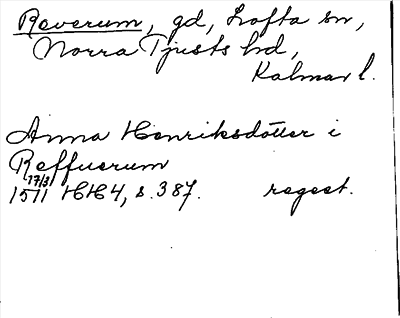 Reverum, gd, Lofta sn,
Norra Tjusts hd,
Kalmar l.
Anna Henriksdotter i
Reffuerum
17/3
1511 HH4, s. 387. regest.